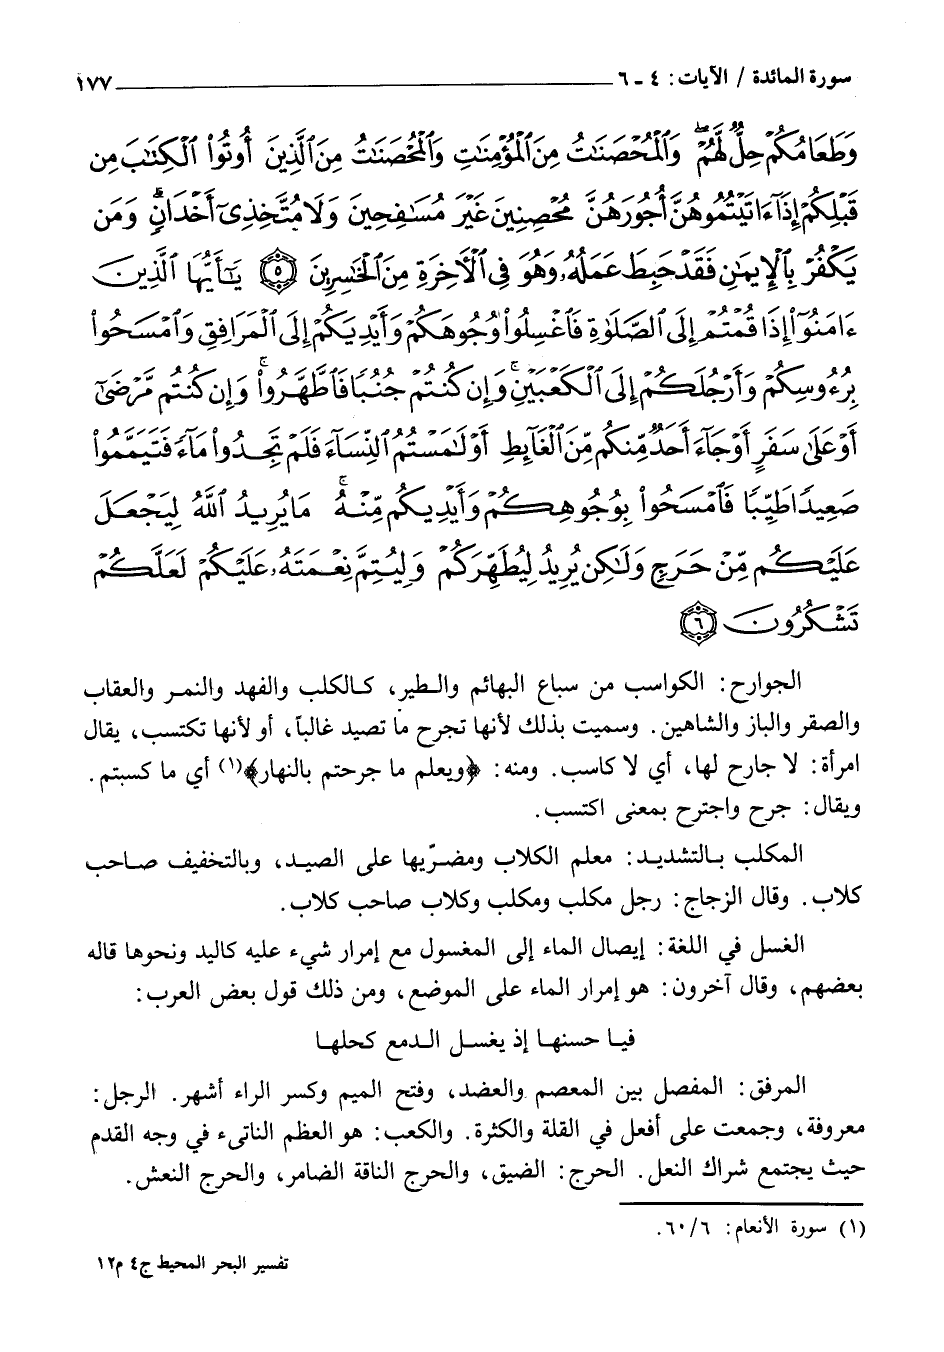 سورة المائدة / الآيات: ٤ ـ ٦ ١٧٧
وَطَعَامُكُمْ حِلٌّ لَّهُمْ ۖ وَٱلْمُحْصَنَٰتُ مِنَ ٱلْمُؤْمِنَٰتِ وَٱلْمُحْصَنَٰتُ مِنَ ٱلَّذِينَ أُوتُوا۟ ٱلْكِتَٰبَ مِن
قَبْلِكُمْ إِذَآ ءَاتَيْتُمُوهُنَّ أُجُورَهُنَّ مُحْصِنِينَ غَيْرَ مُسَٰفِحِينَ وَلَا مُتَّخِذِىٓ أَخْدَانٍ ۗ وَمَن
يَكْفُرْ بِٱلْإِيمَٰنِ فَقَدْ حَبِطَ عَمَلُهُۥ وَهُوَ فِى ٱلْـَٔاخِرَةِ مِنَ ٱلْخَٰسِرِينَ ٥ يَٰٓأَيُّهَا ٱلَّذِينَ
ءَامَنُوٓا۟ إِذَا قُمْتُمْ إِلَى ٱلصَّلَوٰةِ فَٱغْسِلُوا۟ وُجُوهَكُمْ وَأَيْدِيَكُمْ إِلَى ٱلْمَرَافِقِ وَٱمْسَحُوا۟
بِرُءُوسِكُمْ وَأَرْجُلَكُمْ إِلَى ٱلْكَعْبَيْنِ ۚ وَإِن كُنتُمْ جُنُبًا فَٱطَّهَّرُوا۟ ۚ وَإِن كُنتُم مَّرْضَىٰٓ
أَوْ عَلَىٰ سَفَرٍ أَوْ جَآءَ أَحَدٌ مِّنكُم مِّنَ ٱلْغَآئِطِ أَوْ لَٰمَسْتُمُ ٱلنِّسَآءَ فَلَمْ تَجِدُوا۟ مَآءً فَتَيَمَّمُوا۟
صَعِيدًا طَيِّبًا فَٱمْسَحُوا۟ بِوُجُوهِكُمْ وَأَيْدِيكُم مِّنْهُ ۚ مَا يُرِيدُ ٱللَّهُ لِيَجْعَلَ
عَلَيْكُم مِّنْ حَرَجٍ وَلَٰكِن يُرِيدُ لِيُطَهِّرَكُمْ وَلِيُتِمَّ نِعْمَتَهُۥ عَلَيْكُمْ لَعَلَّكُمْ
تَشْكُرُونَ ٦
الجوارح: الكواسب من سباع البهائم والطير، كالكلب والفهد والنمر والعقاب
والصقر والباز والشاهين. وسميت بذلك لأنها تجرح ما تصيد غالباً، أو لأنها تكتسب، يقال
امرأة: لا جارح لها، أي لا كاسب. ومنه: ﴿ويعلم ما جرحتم بالنهار﴾(١) أي ما كسبتم.
ويقال: جرح واجترح بمعنى اكتسب.
المكلب بالتشديد: معلم الكلاب ومضرّيها على الصيد، وبالتخفيف صاحب
كلاب. وقال الزجاج: رجل مكلب ومكلب وكلاب صاحب كلاب.
الغسل في اللغة: إيصال الماء إلى المغسول مع إمرار شيء عليه كاليد ونحوها قاله
بعضهم، وقال آخرون: هو إمرار الماء على الموضع، ومن ذلك قول بعض العرب:
فيا حسنها إذ يغسل الدمع كحلها
المرفق: المفصل بين المعصم والعضد، وفتح الميم وكسر الراء أشهر. الرجل:
معروفة، وجمعت على أفعل في القلة والكثرة. والكعب: هو العظم الناتىء في وجه القدم
حيث يجتمع شراك النعل. الحرج: الضيق، والحرج الناقة الضامر، والحرج النعش.
(١) سورة الأنعام: ٦٠/٦.
تفسير البحر المحيط ج٤ م١٢